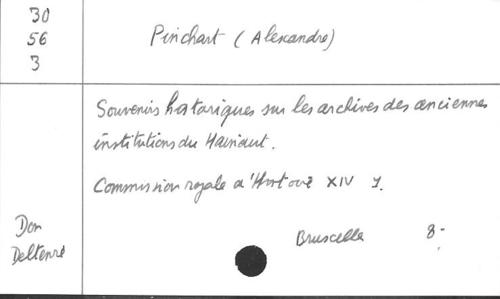 30
56
3
Pinchart (Alexandre)
Souvenirs historiques sur les archives des anciennes
institutions du Hainaut.
Commission royale d'Histoire XIV 1.
Don
Deltenre
Bruxelles 8-